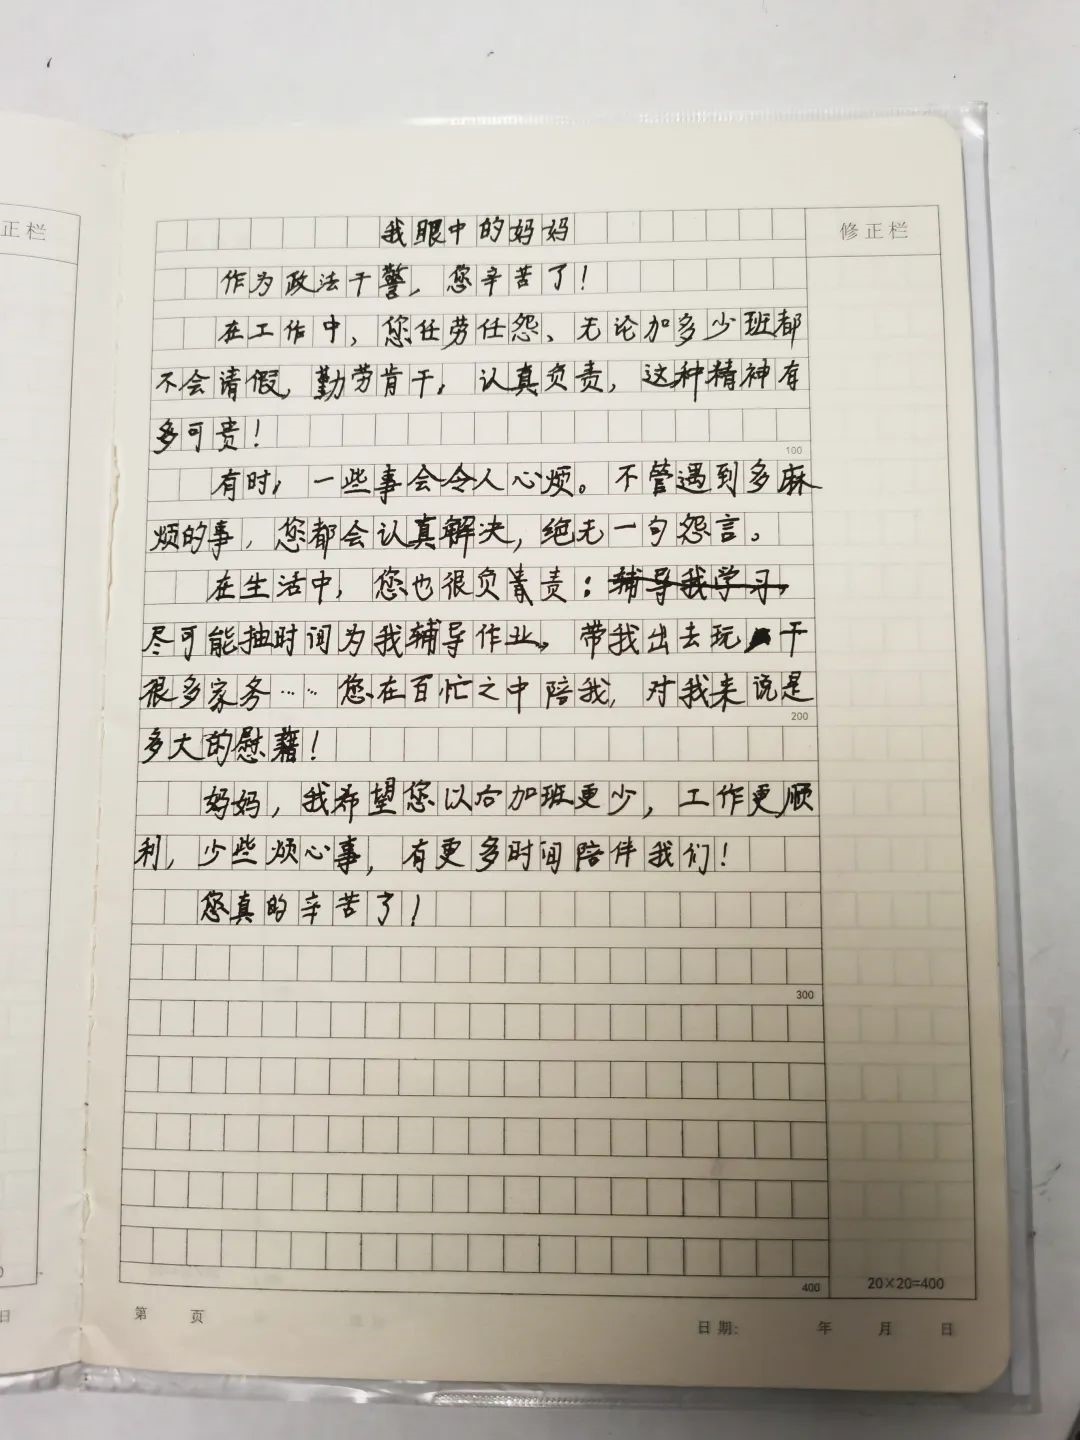 正栏
修正栏
我眼中的妈妈
作为政法干警，您辛苦了！
在工作中，您任劳任怨、无论加多少班都
不会请假，勤劳肯干，认真负责，这种精神有
多可贵！
100
有时，一些事会令人心烦。不管遇到多麻
烦的事，您都会认真解决，绝无一句怨言。
在生活中，您也很负责：辅导我学习，
尽可能抽时间为我辅导作业，带我出去玩，干
很多家务……您在百忙之中陪我，对我来说是
200
多大的慰藉！
妈妈，我希望您以后加班更少，工作更顺
利，少些烦心事，有更多时间陪伴我们！
您真的辛苦了！
300
400
20×20=400
第 页
日期： 年 月 日
日